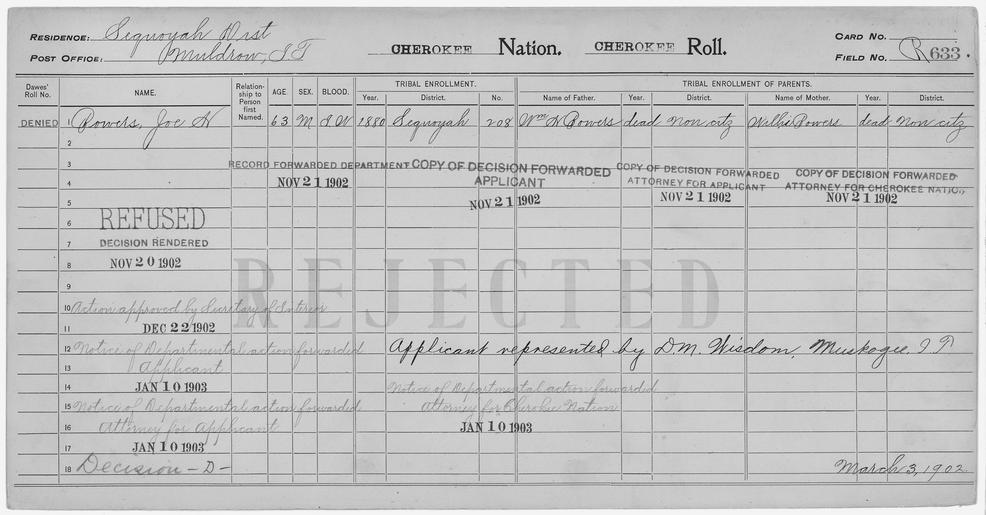 RESIDENCE: Sequoyah Dist
POST OFFICE: Muldrow, I T
CHEROKEE Nation. CHEROKEE Roll.
CARD NO.
FIELD NO. R 633.
Dawes' Roll No. NAME. Relationship to Person first Named. AGE. SEX. BLOOD. TRIBAL ENROLLMENT. Year. District. No. TRIBAL ENROLLMENT OF PARENTS. Name of Father. Year. District. Name of Mother. Year. District.
DENIED 1 Powers, Joe H 63 M I W 1880 Sequoyah 208 Wm H Powers dead non citz Willie Powers dead non citz
2
3 RECORD FORWARDED DEPARTMENT COPY OF DECISION FORWARDED COPY OF DECISION FORWARDED COPY OF DECISION FORWARDED
4 NOV 21 1902 APPLICANT ATTORNEY FOR APPLICANT ATTORNEY FOR CHEROKEE NATION.
5 NOV 21 1902 NOV 21 1902 NOV 21 1902
6 REFUSED
7 DECISION RENDERED
8 NOV 20 1902
REJECTED
9
10 Action approved by Secretary of Interior
11 DEC 22 1902
12 Notice of Departmental action forwarded Applicant represented by D.M. Wisdom, Muskogee, I T
13 Applicant
14 JAN 10 1903 Notice of Departmental action forwarded
15 Notice of Departmental action forwarded Attorney for Cherokee Nation
16 Attorney for Applicant JAN 10 1903
17 JAN 10 1903
18 Decision - D - March 3, 1902